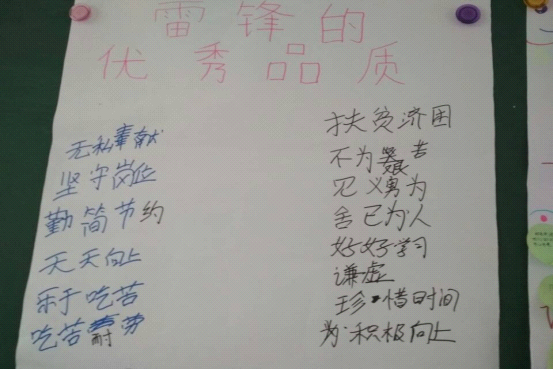 雷锋的
优秀品质
无私奉献
坚守岗位
勤简节约
天天向上
乐于吃苦
吃苦耐劳
扶贫济困
不为艰苦
见义勇为
舍己为人
好好学习
谦虚
珍惜时间
为积极向上